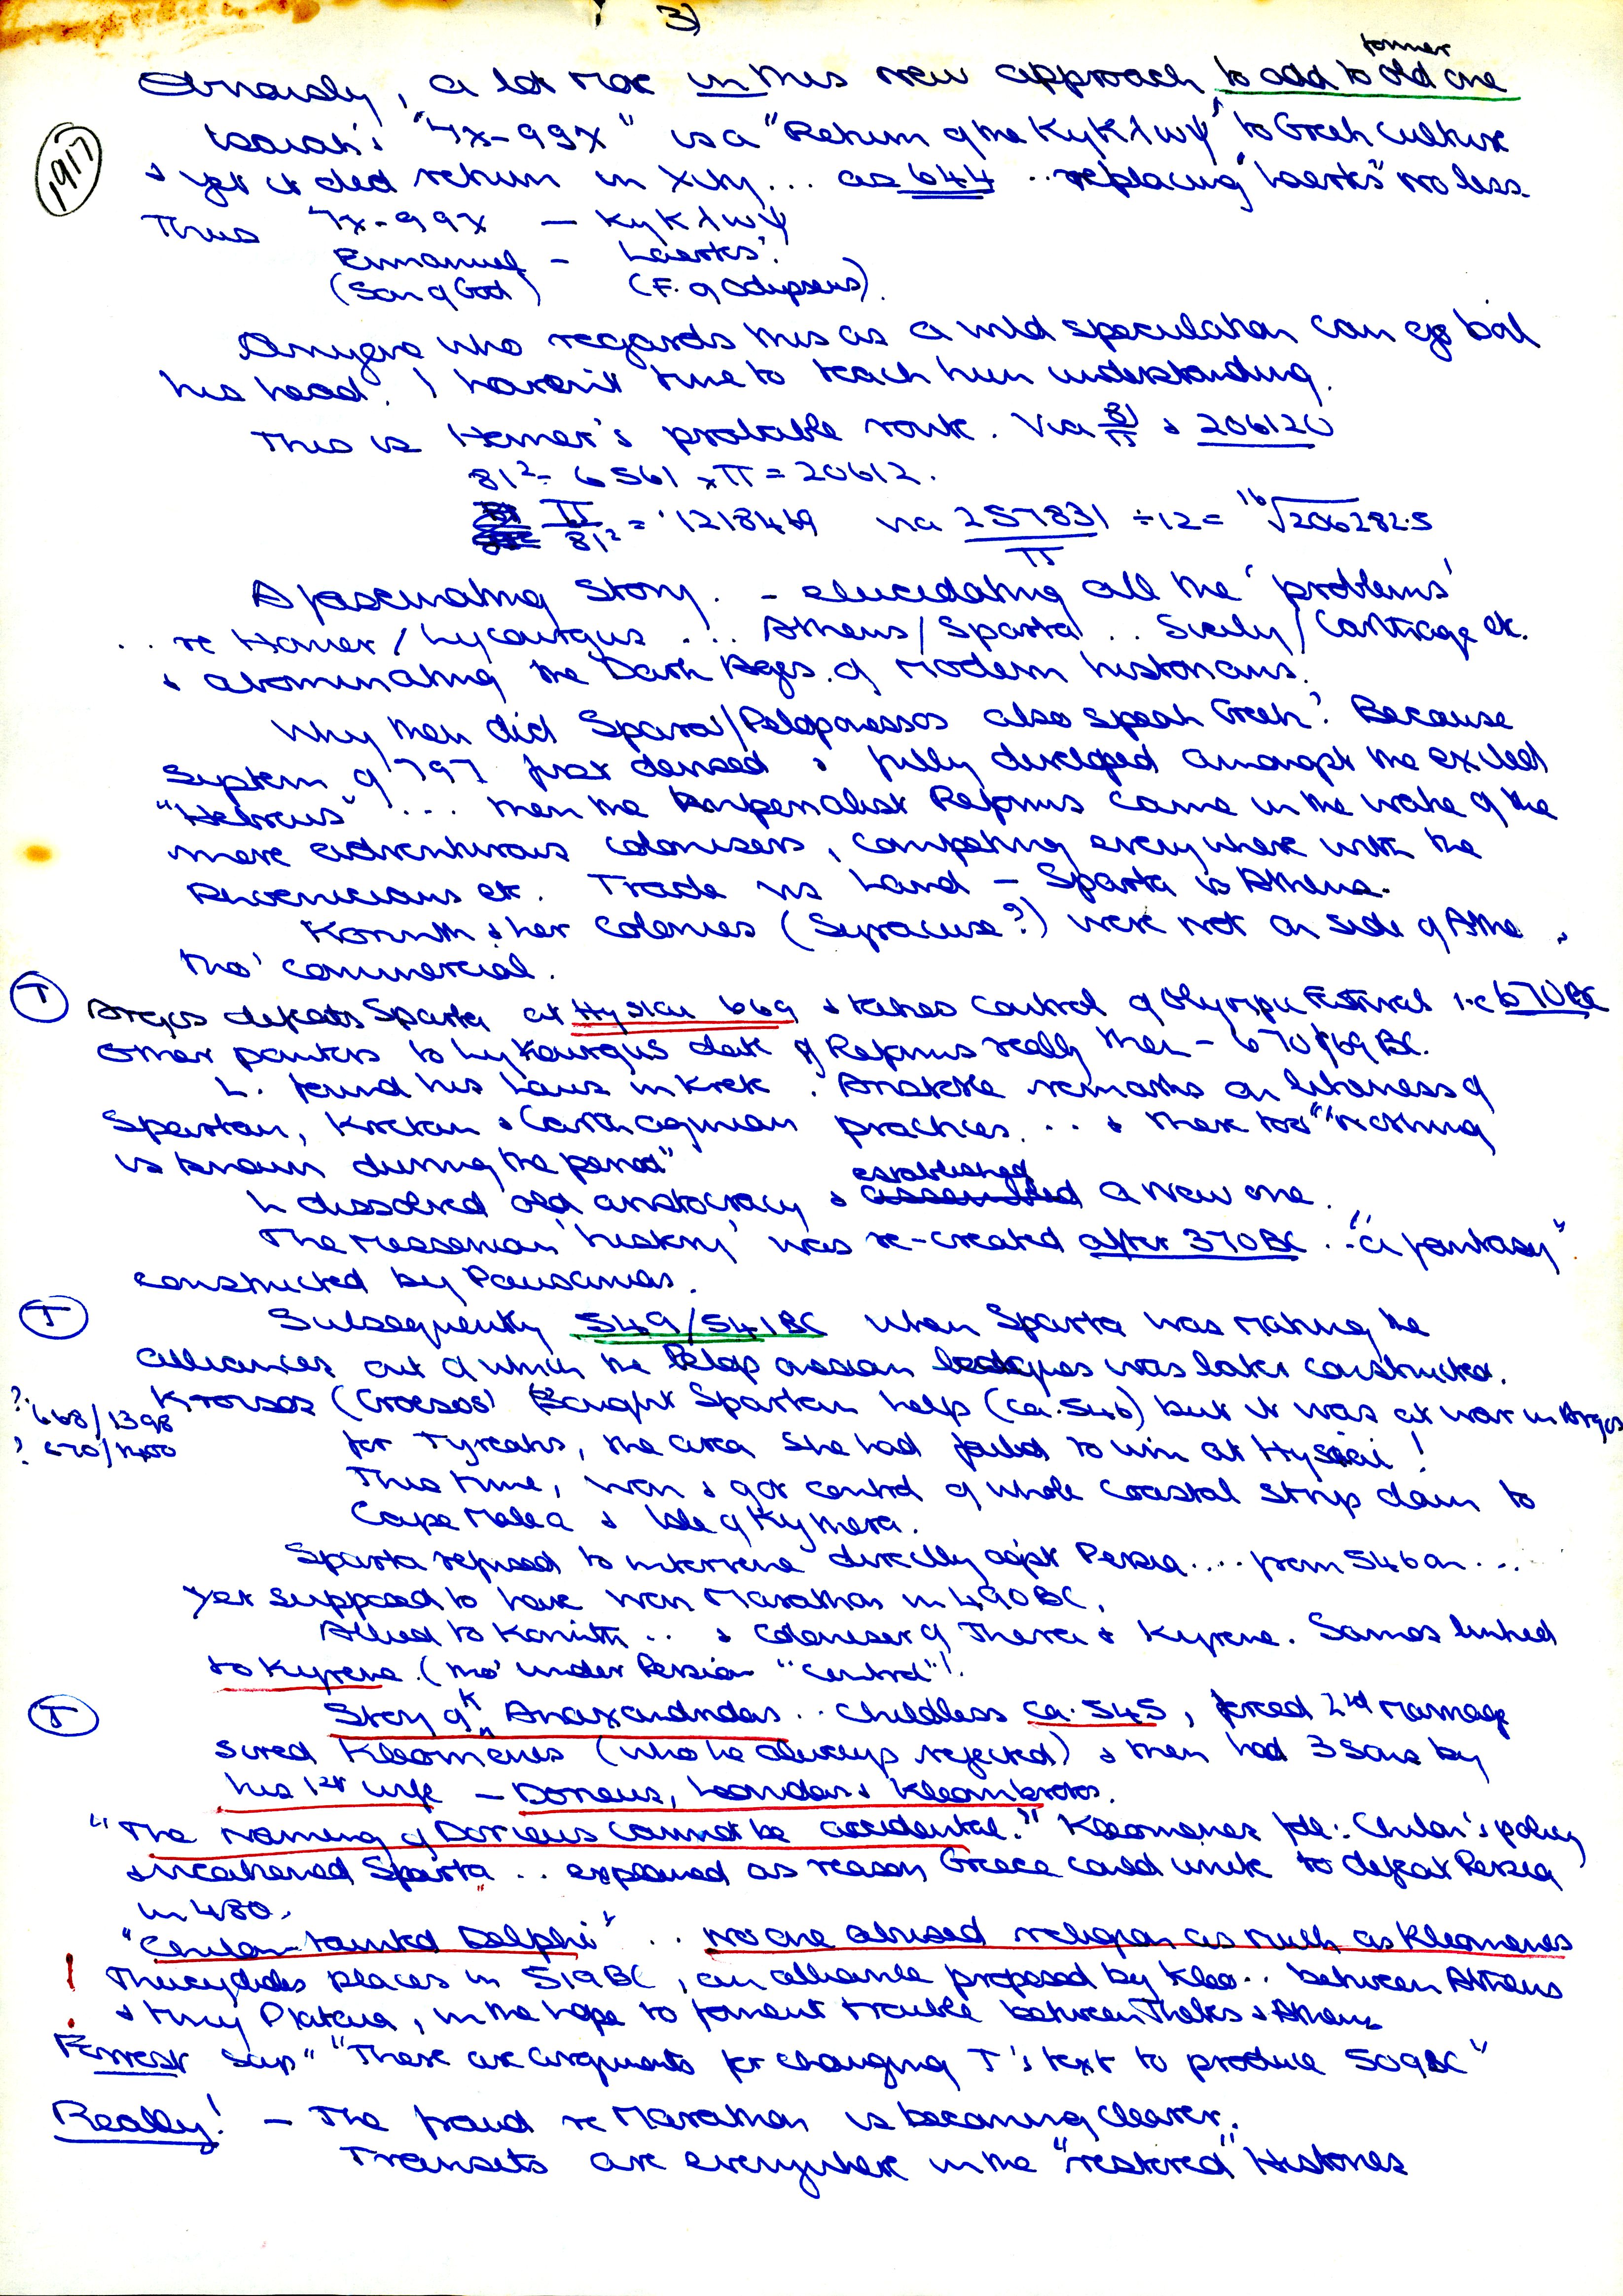 3)
former
Obviously, a lot more in this new approach to add to old one
1917
Isaiah's "4x-99x" is a "Return of the ΚyΚλωψ" to Greek Culture
& yet it did return in Xity... as 644 .. replacing "Laertes" no less.
Thus 4x-99x — ΚyΚλωψ
Emmanuel - Laertes.
(Son of God) (F. of Odysseus).
Anyone who regards this as a wild speculation can go boil
his head. I haven't time to teach him understanding.
This is Homer's probable route. Via 81/π & 206120
81² = 6561 × π = 20612.
π/81² = ·1218469 via 257831/π ÷ 12 = ¹⁶√206282.5
A fascinating story. - elucidating all the 'problems'
.. re Homer / Lycourgus ... Athens / Sparta .. Sicily / Carthage etc.
& abominating the Dark Ages of modern historians.
Why then did Sparta/Peloponessos also speak Greek? Because
System of 797 first devised & fully developed amongst the exiled
"Hebrews" ... then the Imperialist Reforms came in the wake of the
more adventurous colonisers, competing everywhere with the
Phoenicians etc. Trade vs Land — Sparta vs Athens.
Korinth & her colonies (Syracuse?) were not on side of Athe ,
tho' commercial.
(T) Argos defeats Sparta at Hysiai 669 & takes control of Olympic Festival i.e 670 BC
other pointers to Lykourgus date of Reforms really then — 670/69 BC.
L. found his Laws in Krete. Aristotle remarks on likeness of
Spartan, Kretan & Carthaginian practices... & there too "nothing
is known during the period"
established
L dissolved old aristocracy & assembled a new one.
The Messenian 'history' was re-created after 370 BC .. "a fantasy"
constructed by Pausanias.
(T) Subsequently 549/541 BC when Sparta was making the
alliances out of which the Pelop onesian leagues was later constructed.
?. 668/1398
? 670/1400
Kroisos (Croesos) Bought Spartan help (ca. 546) but it was at war w Argos
for Tyreatis, the area she had failed to win at Hysiai!
This time, won & got control of whole coastal strip down to
Cape Malea & Isle of Kythera.
Sparta refused to intervene directly agst Persia .... from 546 on ...
yet supposed to have won Marathon in 490 BC.
Allied to Korinth .. & coloniser of Thera & Kyrene. Samos linked
to Kyrene. (tho' under Persian "control")!
(T) Story of K Anaxandridas .. Childless ca. 545, forced 2nd marriage
sired Kleomenes (who he always rejected) & then had 3 sons by
his 1st wife — Dorieus, Leonidas & Kleombrotos.
"The naming of Dorieus cannot be accidental." Kleomenes Chilon's policy
& weakened Sparta .. explained as reason Greece could unite to defeat Persia
in 480.
"Chilon tainted Delphi" .. no one abused religion as much as Kleomenes
! Thucydides places in 519 BC, an alliance proposed by Kleo.. between Athens
& tiny Plataea, in the hope to foment trouble between Thebes & Athens
Forrest says "There are arguments for changing T's text to produce 509 BC"
Really! — The fraud re Marathon is becoming clearer.
Transits are everywhere in the "restored" Histories